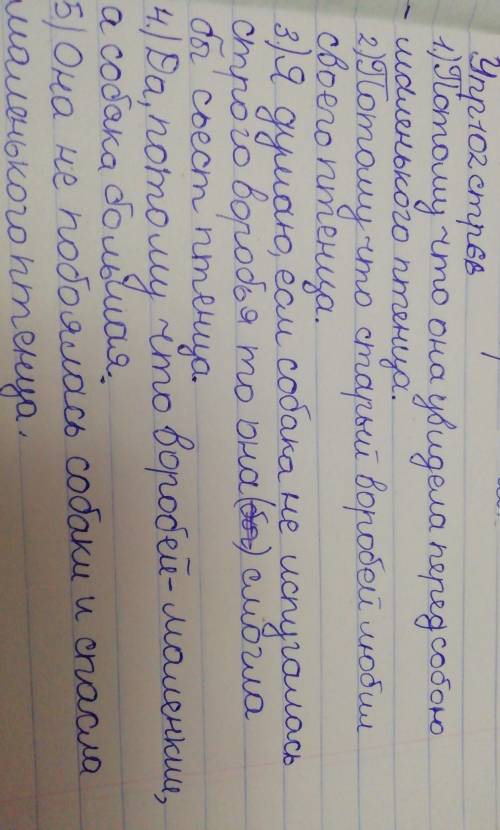 Упр.102 стр 68
1) Потому что она увидела перед собою
маленького птенца.
2) Потому что старый воробей любил
своего птенца.
3) Я думаю, если собака не испугалась
строго воробья то она (бы) смогла
бы сьест птенца.
4.) Да, потому что воробей - маленкии,
а собака большая.
5) Она не побоялась собаки и спасла
маленького птенца.